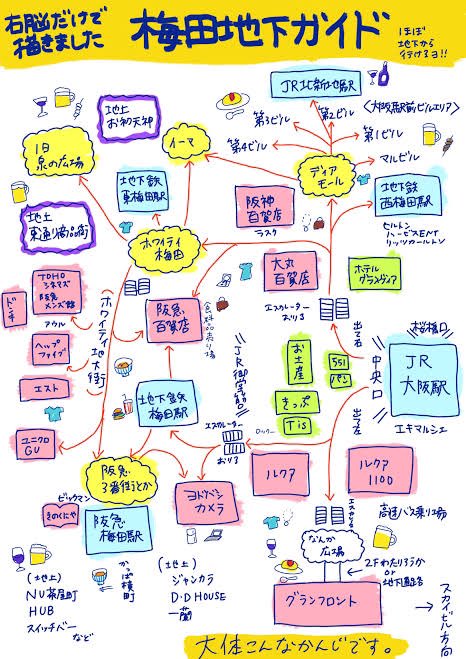 右脳だけで
描きました
梅田地下ガイド
ほぼ
地下から
行けるヨ!!
JR北新地駅
地上
お初天神
第3ビル
第2ビル
〈大阪駅前ビルエリア〉
第1ビル
第4ビル
マルビル
旧
泉の広場
イーマ
ディア
モール
地下鉄
東梅田駅
阪神
百貨店
ラスク
地下鉄
西梅田駅
ヒルトン
ハービスENT
リッツカールトン
地上
東通り商店街
ホワイティ
梅田
大丸
百貨店
ホテル
グランヴィア
TOHO
シネマズ
阪急
メンズ館
ドンキ
ナウル
ホワイティ地大街
阪急
百貨店
食料品売り場
エスカレーター
おりる
出て右
桜橋口
ヘルプ
ファイブ
JR御堂筋口
お土産
551
パン
中央口
JR
大阪駅
エスト
地下鉄
梅田駅
きっぷ
Tis
出て左
エキマルシェ
ユニクロ
GU
エスカレーター
おりる
ロッカー
阪急
3番街とか
ルクア
ルクア
1100
ビッグマン
きのくにや
阪急
梅田駅
ヨドバシ
カメラ
エスカレータ
高速バス乗り場
なんか
広場
かっぱ横町
2Fわたりろうか
or
地下直結
(地上)
NU茶屋町
HUB
スイッチバー
など
(地上)
ジャンカラ
D・D HOUSE
一蘭
グランフロント
スカイビル方向
大体こんなかんじです。